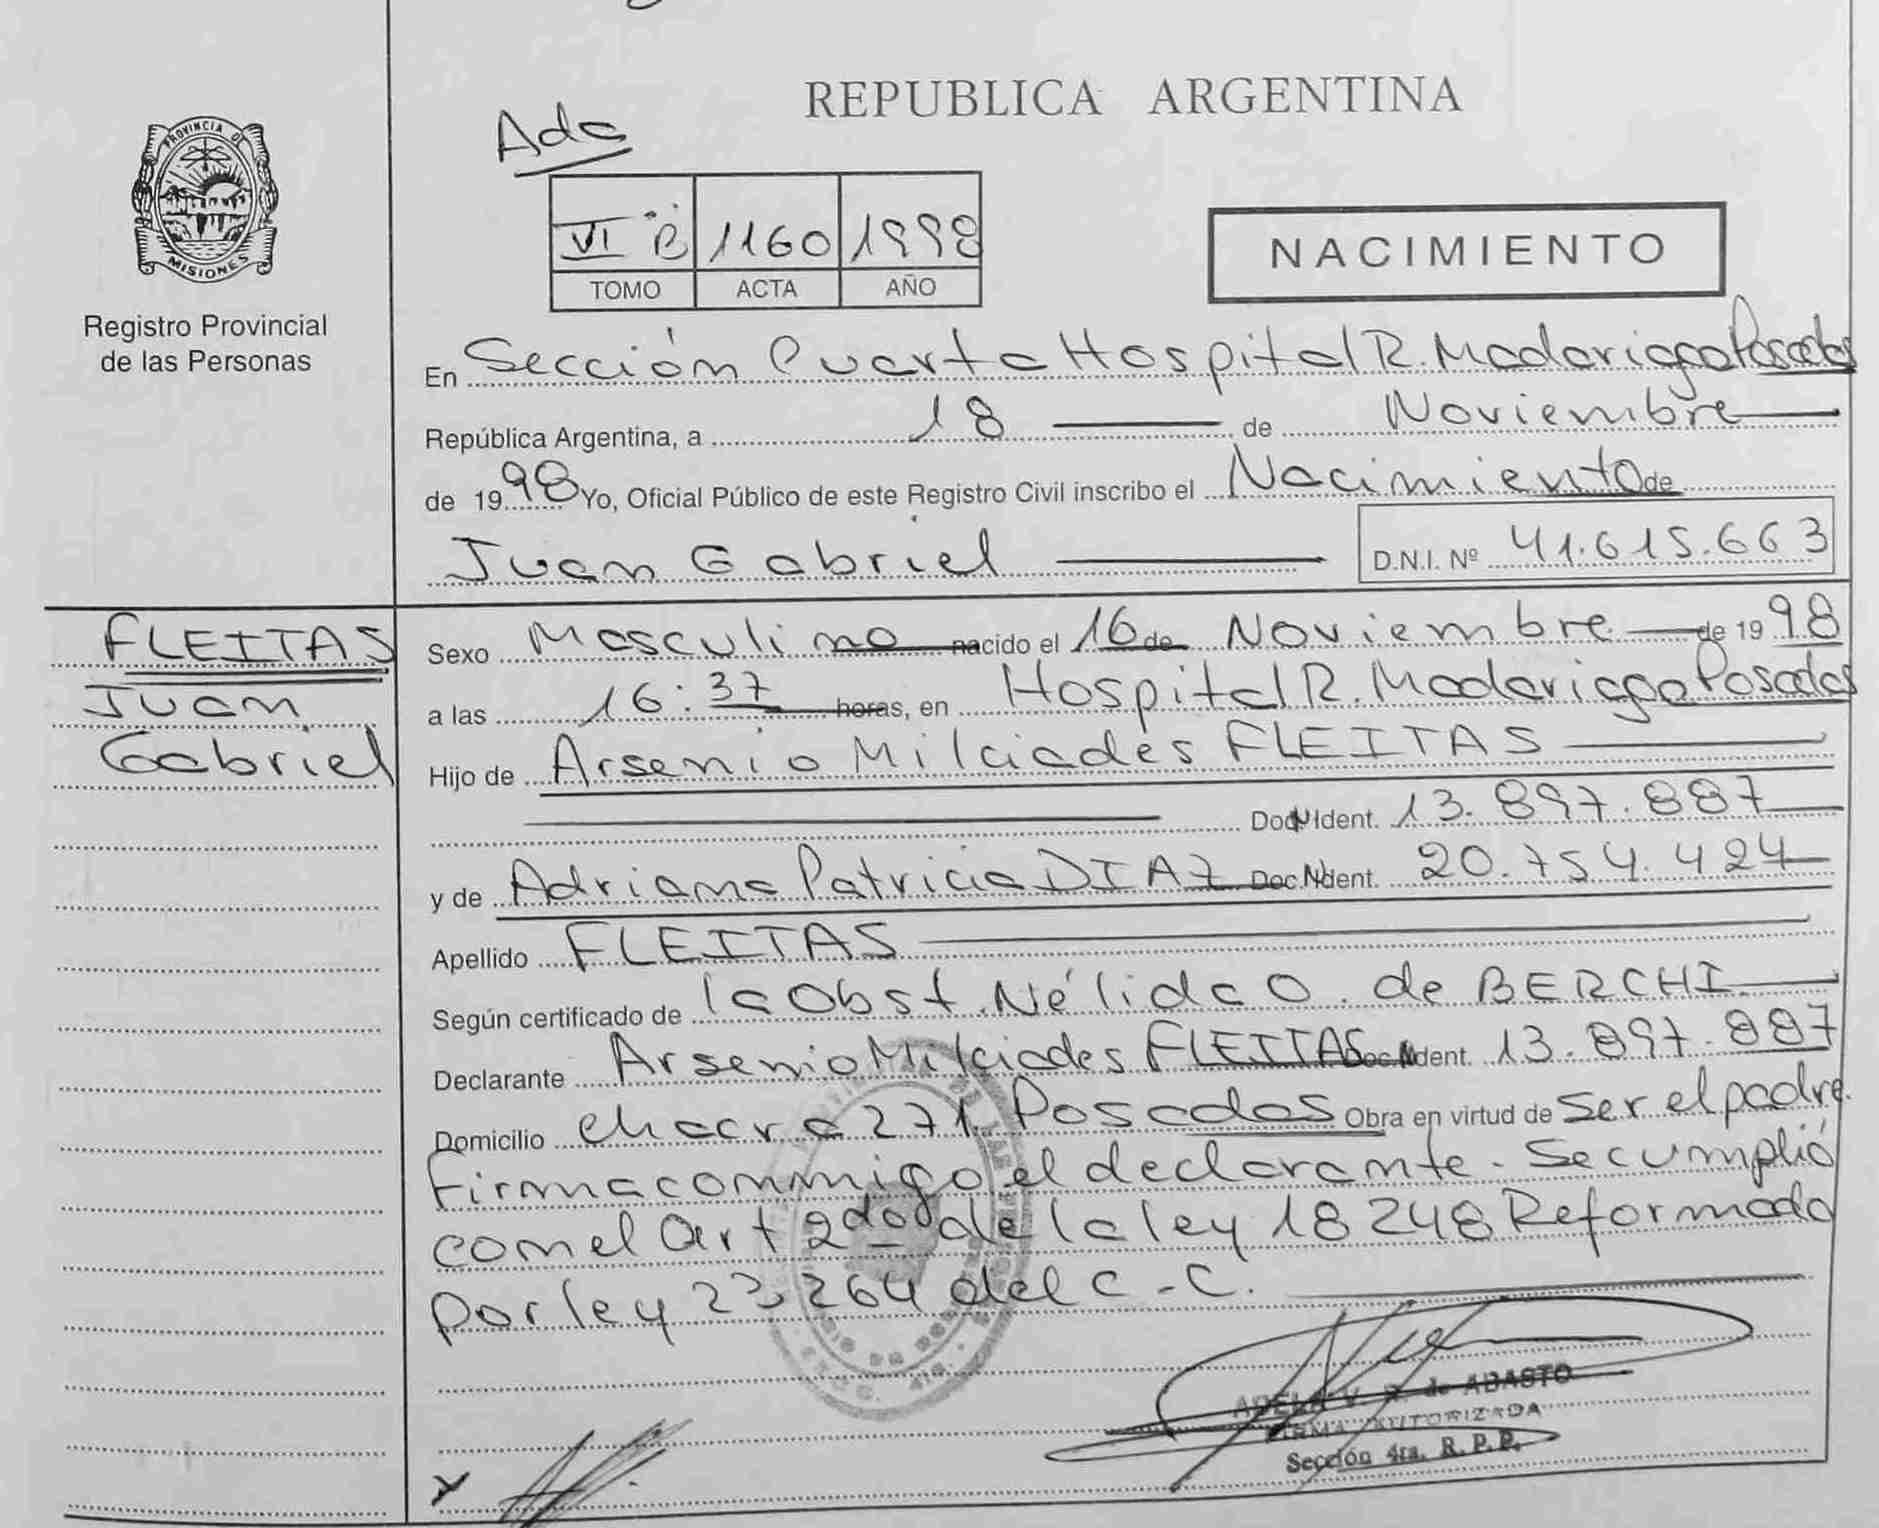 REPUBLICA ARGENTINA
Ada
PROVINCIA DE
MISIONES
VI "B" 1160 1998
TOMO ACTA AÑO
NACIMIENTO
Registro Provincial
de las Personas
En Sección Cuarta Hospital R. Madariaga Posadas
República Argentina, a 18 de Noviembre
de 1998 Yo, Oficial Público de este Registro Civil inscribo el Nacimiento de
Juan Gabriel D.N.I. Nº 41.615.663
FLEITAS
Juan
Gabriel
Sexo Masculino nacido el 16 de Noviembre de 1998
a las 16:37 horas, en Hospital R. Madariaga Posadas
Hijo de Arsenio Milciades FLEITAS
Doc. N Ident. 13.897.887
y de Adriana Patricia DIAZ Doc. N Ident. 20.754.424
Apellido FLEITAS
Según certificado de la Obst. Nélida O. de BERCHI
Declarante Arsenio Milciades FLEITAS Doc. N Ident. 13.897.887
Domicilio chacra 271 Posadas Obra en virtud de ser el padre.
Firma conmigo el declarante. Se cumplió
con el art 2do de la ley 18248 Reformada
por ley 23264 del C.C.
ADELA V. de ABASTO
FIRMA AUTORIZADA
Sección 4ta. R. P. P.